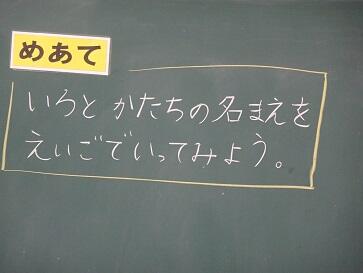 めあて
いろと かたちの名まえを
えいごでいってみよう。